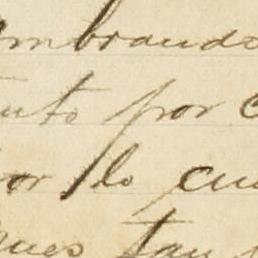 mbrando
nto por c
or lo cu
ues tan